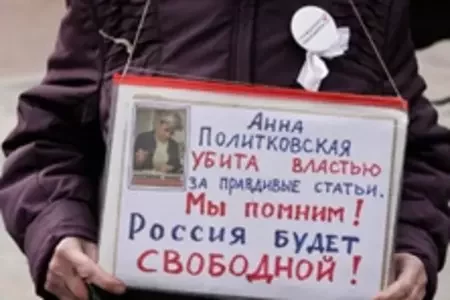 Анна
Политковская
убита властью
за правдивые статьи.
Мы помним!
Россия будет
свободной!